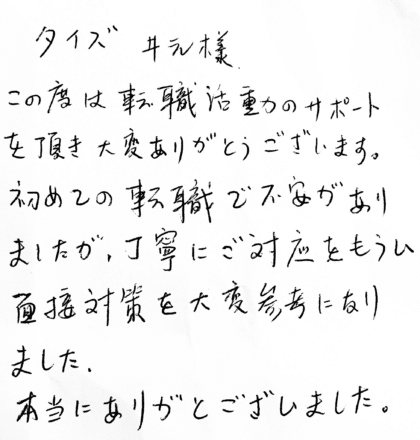 タイズ 井元様
この度は転職活動のサポート
を頂き大変ありがとうございます。
初めての転職で不安があり
ましたが、丁寧にご対応をもらい
面接対策を大変参考になり
ました.
本当にありがとございました。